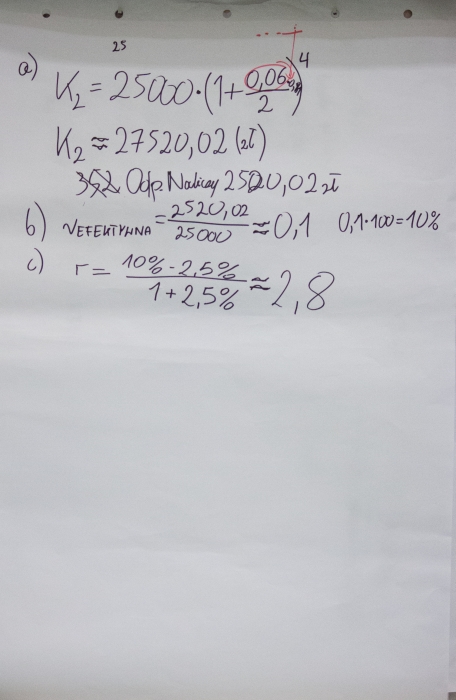 25
a) K₂ = 25000·(1+0,06/2)⁴
K₂ ≈ 27520,02 (zł)
Odp. Naliczy 2520,02 zł
b) rEFEKTYWNA = 2520,02/25000 ≈ 0,1 0,1·100=10%
c) r = 10%-2,5%/1+2,5% ≈ 2,8